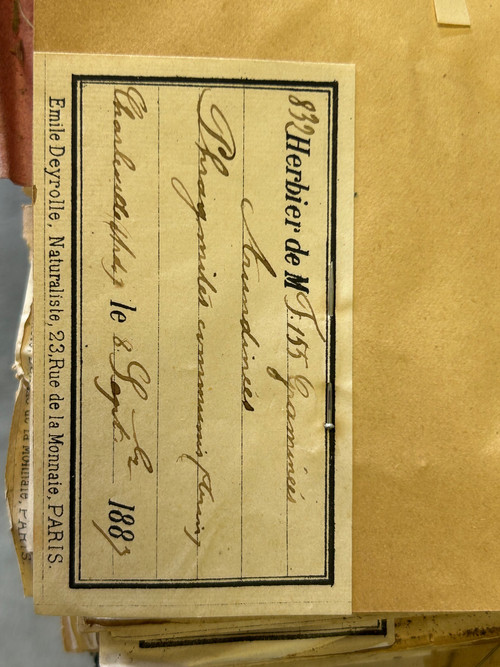 832 Herbier de M T. 155 Graminées
Arundinées
Phragmites communis Trin.
le 8 Sept.bre 1883
Emile Deyrolle, Naturaliste, 23, Rue de la Monnaie, PARIS.
de la Monnaie, PARIS.